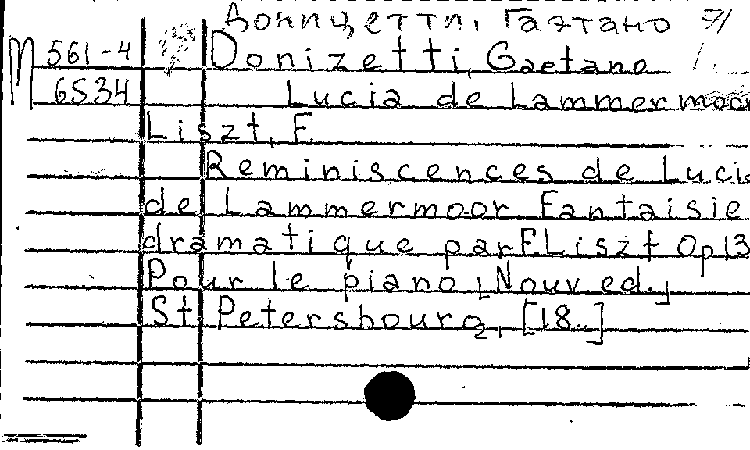 Доницетти, Гаэтано
М 561-4 Donizetti, Gaetano
6534 Lucia de Lammermoor
Liszt, F.
Reminiscences de Lucia
de Lammermoor Fantaisie
dramatique par F. Liszt Op 13
Pour le piano [Nouv ed.]
St Petersbourg, [18..]